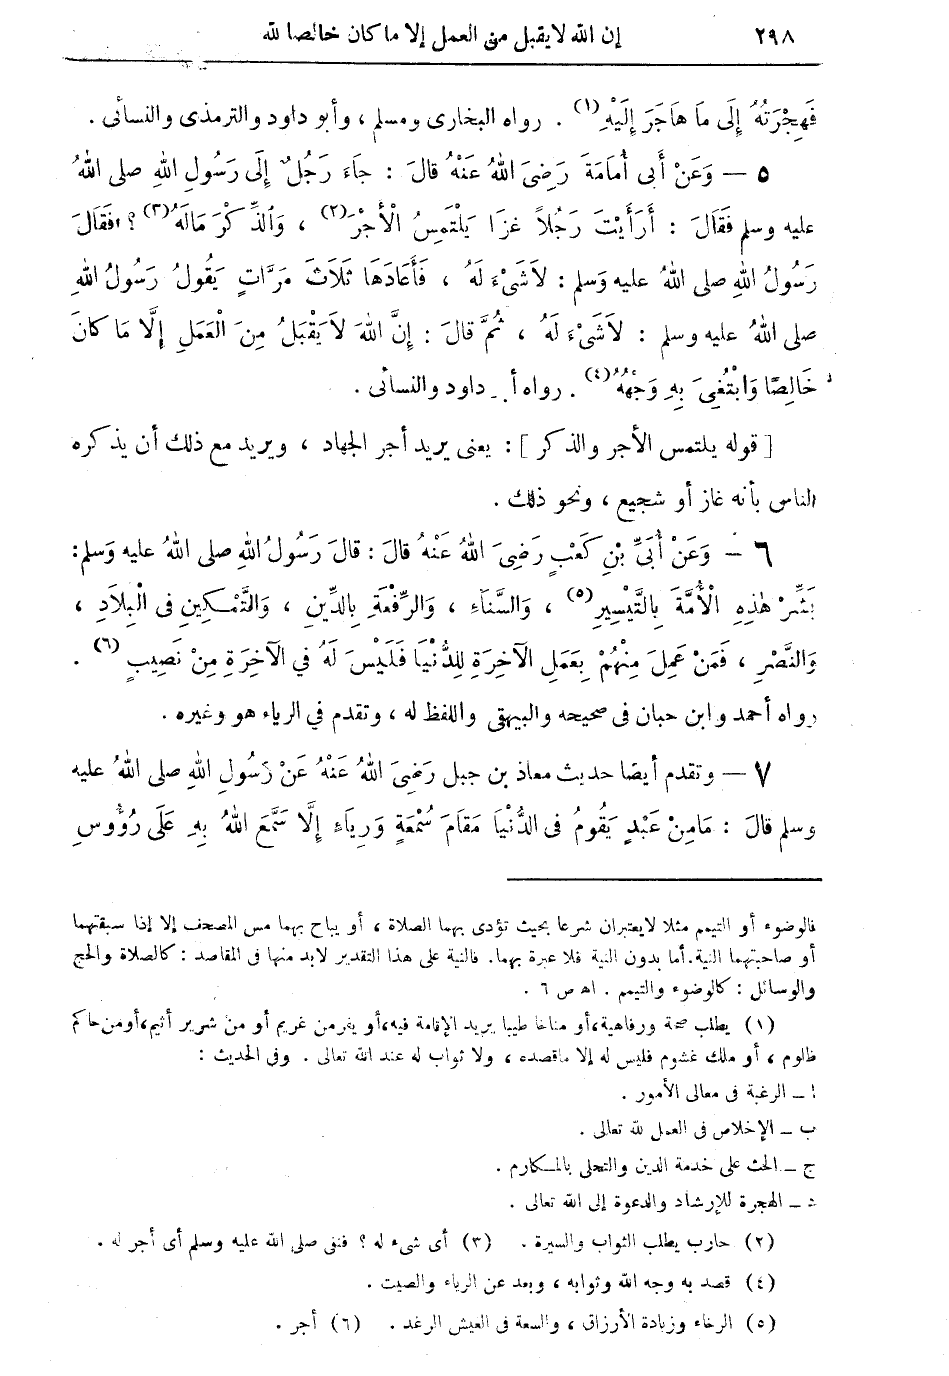 ٢٩٨ إن الله لا يقبل من العمل إلا ما كان خالصا لله
فَهِجْرَتُهُ إِلَى مَا هَاجَرَ إِلَيْهِ (١) . رواه البخارى ومسلم ، وأبو داود والترمذى والنسائى .
٥ — وَعَنْ أَبِى أُمَامَةَ رَضِىَ اللهُ عَنْهُ قَالَ : جَاءَ رَجُلٌ إِلَى رَسُولِ اللهِ صلى اللهُ
عليه وسلم فَقَالَ : أَرَأَيْتَ رَجُلاً غَزَا يَلْتَمِسُ الْأَجْرَ (٢) ، وَالذِّكْرَ مَالَهُ (٣) ؟ فَقَالَ
رَسُولُ اللهِ صلى اللهُ عليه وَسلم : لاَ شَىْءَ لَهُ ، فَأَعَادَهَا ثَلاَثَ مَرَّاتٍ يَقُولُ رَسُولُ اللهِ
صلى اللهُ عليه وسلم : لاَ شَىْءَ لَهُ ، ثُمَّ قالَ : إِنَّ اللهَ لاَ يَقْبَلُ مِنَ الْعَمَلِ إِلَّا مَا كَانَ
خَالِصًا وَابْتُغِىَ بِهِ وَجْهُهُ (٤) . رواه أبـ داود والنسائى .
[ قوله يلتمس الأجر والذكر ] : يعنى يريد أجر الجهاد ، ويريد مع ذلك أن يذكره
الناس بأنه غاز أو شجيع ، ونحو ذلك .
٦ — وَعَنْ أُبَىِّ بْنِ كَعْبٍ رَضِىَ اللهُ عَنْهُ قالَ : قالَ رَسُولُ اللهِ صلى اللهُ عليه وَسلم :
بَشِّرْ هٰذِهِ الْأُمَّةَ بِالتَّيْسِيرِ (٥) ، وَالسَّنَاءِ ، وَالرِّفْعَةِ بِالدِّينِ ، وَالتَّمْكِينِ فى الْبِلاَدِ ،
وَالنَّصْرِ ، فَمَنْ عَمِلَ مِنْهُمْ بِعَمَلِ الآخِرَةِ لِلدُّنْيَا فَلَيْسَ لَهُ فِي الآخِرَةِ مِنْ نَصِيبٍ (٦) .
رواه أحمد وابن حبان فى صحيحه والبيهقى واللفظ له ، وتقدم في الرياء هو وغيره .
٧ — وتقدم أيضا حديث معاذ بن جبل رَضِىَ اللهُ عَنْهُ عَنْ رَسُولِ اللهِ صلى اللهُ عليه
وسلم قالَ : مَا مِنْ عَبْدٍ يَقُومُ فى الدُّنْيَا مَقَامَ سُمْعَةٍ وَرِيَاءٍ إِلَّا سَمَّعَ اللهُ بِهِ عَلَى رُؤُوسِ
فالوضوء أو التيمم مثلا لا يعتبران شرعا بحيث تؤدى بهما الصلاة ، أو يباح بهما مس المصحف إلا إذا سبقتهما
أو صاحبتهما النية . أما بدون النية فلا عبرة بهما. فالنية على هذا التقدير لابد منها فى المقاصد : كالصلاة والحج
والوسائل : كالوضوء والتيمم . اهـ ص ٦ .
(١) يطلب صحة ورفاهية ، أو مناخا طيبا يريد الإقامة فيه ، أو يفر من غريم أو من شرير أثيم ، أو من حاكم
ظالوم ، أو ملك غشوم فليس له إلا ما قصده ، ولا ثواب له عند الله تعالى . وفى الحديث :
ا – الرغبة فى معالى الأمور .
ب – الإخلاص فى العمل لله تعالى .
ج – الحث على خدمة الدين والتحلى بالمكارم .
د – الهجرة للإرشاد والدعوة إلى الله تعالى .
(٢) حارب يطلب الثواب والسيرة . (٣) أى شىء له ؟ فنفى صلى الله عليه وسلم أى أجر له .
(٤) قصد به وجه الله وثوابه ، وبعد عن الرياء والصيت .
(٥) الرخاء وزيادة الأرزاق ، والسعة فى العيش الرغد . (٦) أجر .